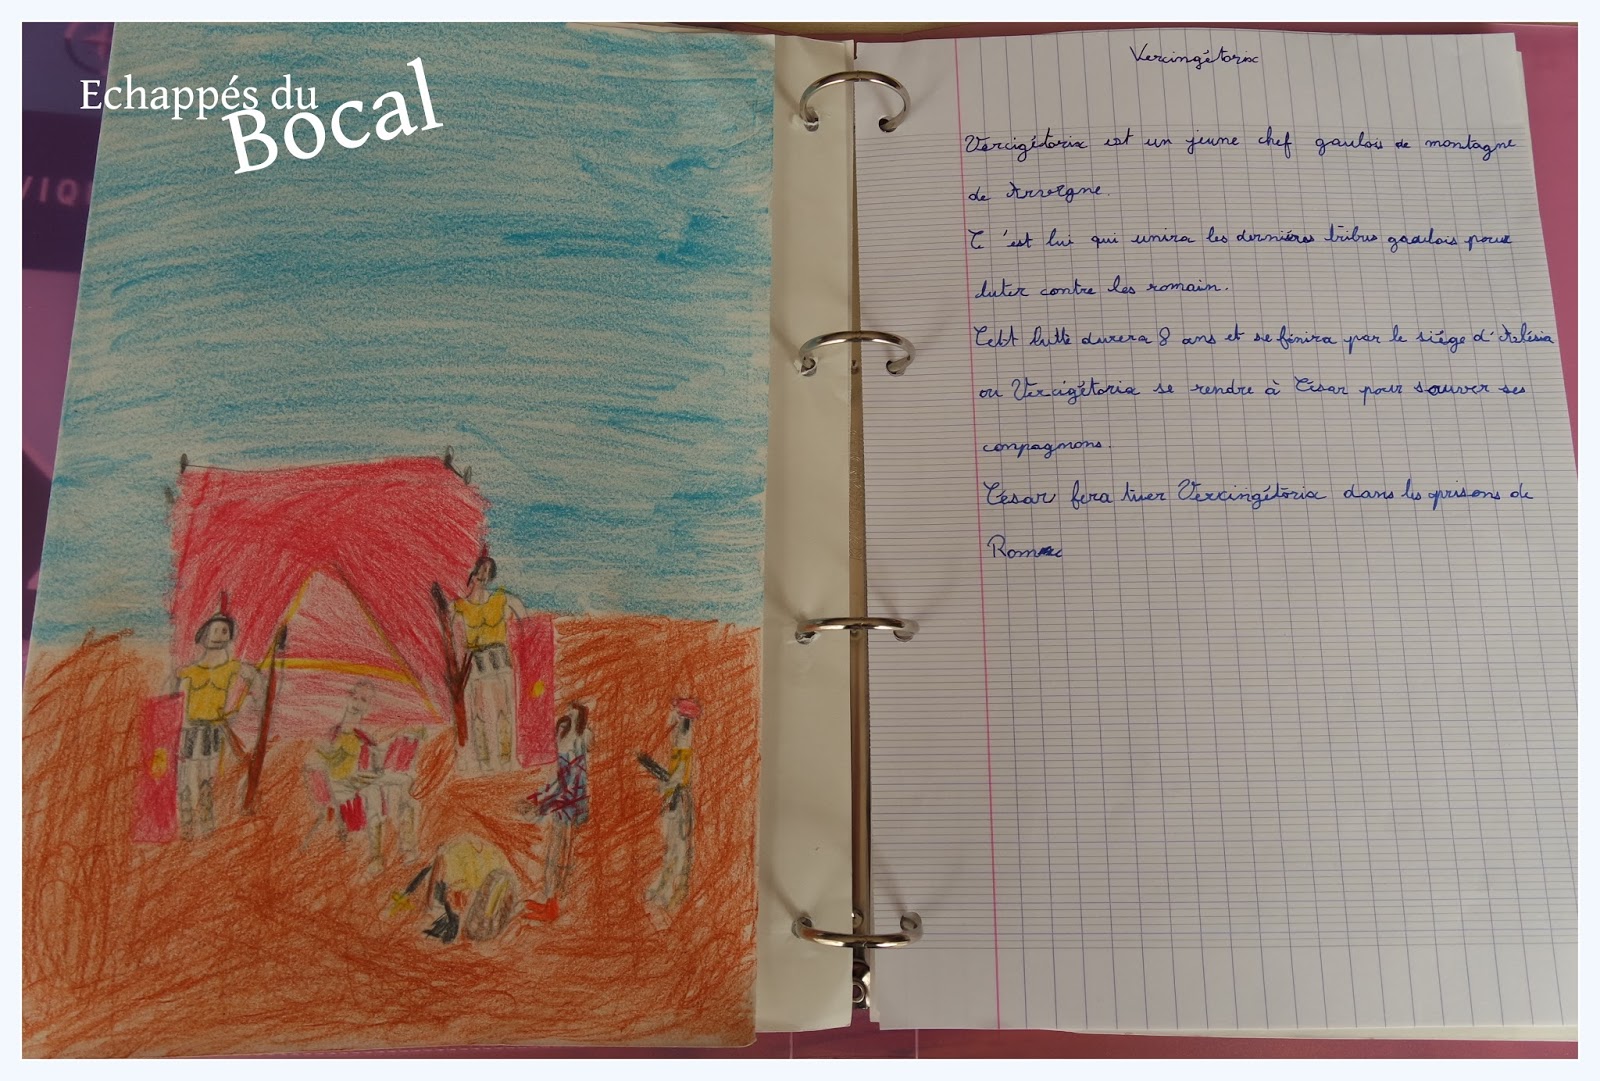 Echappés du
Bocal
VIQ
Vercingétorix
Vercigétorix est un jeune chef gaulois de montagne
de Arvergne.
C'est lui qui unira les dernières tribus gaulois pour
luter contre les romain.
Cett lutte durera 8 ans et se finira par le siége d'Alésia
ou Vercigétorix se rendre à César pour sauver ses
conpagnons.
César fera tuer Vercingétorix dans les prisons de
Rome